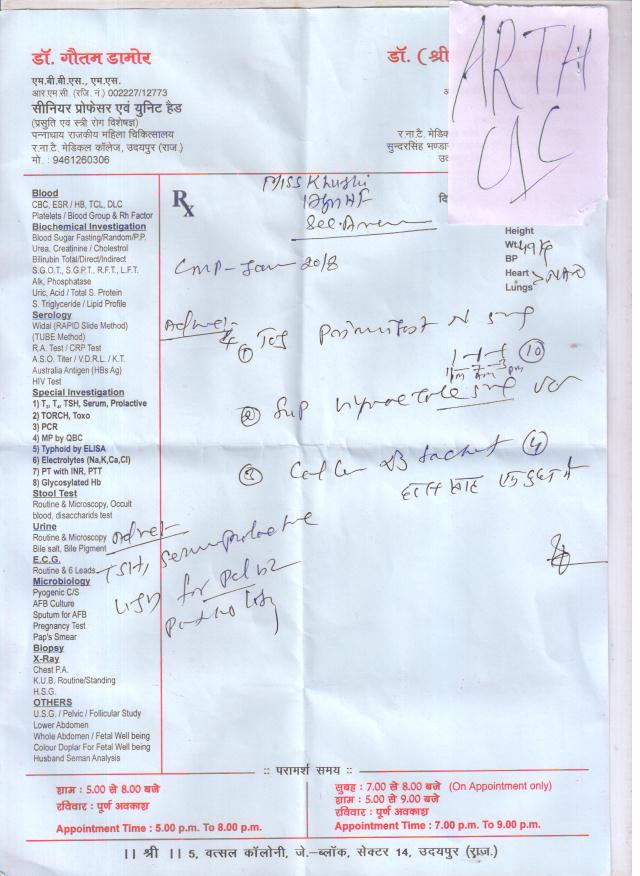 डॉ. गौतम डामोर
एम.बी.बी.एस., एम.एस.
आर.एम.सी. (रजि. नं.) 002227/12773
सीनियर प्रोफेसर एवं युनिट हैड
(प्रसुति एवं स्त्री रोग विशेषज्ञ)
पन्नाधाय राजकीय महिला चिकित्सालय
र.ना.टै. मेडिकल कॉलेज, उदयपुर (राज.)
मो. : 9461260306
डॉ. (श्री
र.ना.टै. मेडिक
सुन्दरसिंह भण्डा
उद
ARTH
CIC
Miss Khushi
Rx
दि
Height
Wt 49 kg
BP
Heart
Lungs > NAD
LMP - Jan 2018
Advice
① Tab N
1-1-1 ⑩
② Syp
③ Sachet ④
Advice
TSH, Serum prolactine
USG for
Blood
CBC, ESR / HB, TCL, DLC
Platelets / Blood Group & Rh Factor
Biochemical Investigation
Blood Sugar Fasting/Random/P.P.
Urea, Creatinine / Cholestrol
Bilirubin Total/Direct/Indirect
S.G.O.T., S.G.P.T., R.F.T., L.F.T.
Alk, Phosphatase
Uric, Acid / Total S. Protein
S. Triglyceride / Lipid Profile
Serology
Widal (RAPID Slide Method)
(TUBE Method)
R.A. Test / CRP Test
A.S.O. Titer / V.D.R.L. / K.T.
Australia Antigen (HBs Ag)
HIV Test
Special Investigation
1) T₃, T₄, TSH, Serum, Prolactive
2) TORCH, Toxo
3) PCR
4) MP by QBC
5) Typhoid by ELISA
6) Electrolytes (Na,K,Ca,Cl)
7) PT with INR, PTT
8) Glycosylated Hb
Stool Test
Routine & Microscopy, Occult
blood, disaccharids test
Urine
Routine & Microscopy
Bile salt, Bile Pigment
E.C.G.
Routine & 6 Leads
Microbiology
Pyogenic C/S
AFB Culture
Sputum for AFB
Pregnancy Test
Pap's Smear
Biopsy
X-Ray
Chest P.A.
K.U.B. Routine/Standing
H.S.G.
OTHERS
U.S.G. / Pelvic / Follicular Study
Lower Abdomen
Whole Abdomen / Fetal Well being
Colour Doplar For Fetal Well being
Husband Seman Analysis
:: परामर्श समय ::
शाम : 5.00 से 8.00 बजे
रविवार : पूर्ण अवकाश
Appointment Time : 5.00 p.m. To 8.00 p.m.
सुबह : 7.00 से 8.00 बजे (On Appointment only)
शाम : 5.00 से 9.00 बजे
रविवार : पूर्ण अवकाश
Appointment Time : 7.00 p.m. To 9.00 p.m.
|| श्री || 5, वत्सल कॉलोनी, जे.-ब्लॉक, सेक्टर 14, उदयपुर (राज.)